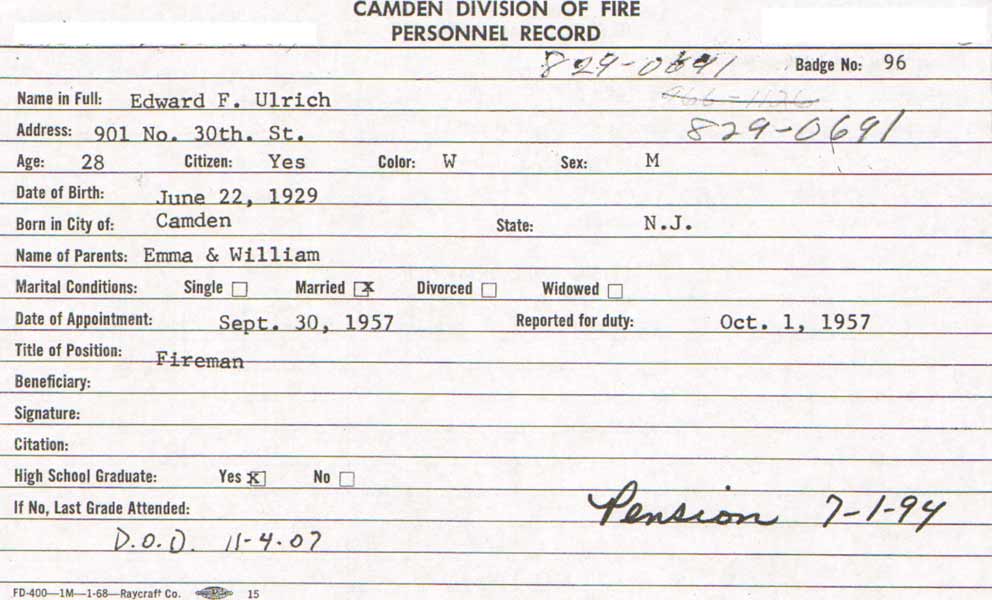 CAMDEN DIVISION OF FIRE
PERSONNEL RECORD
829-0691 Badge No: 96
966-1126
Name in Full: Edward F. Ulrich
829-0691
Address: 901 No. 30th. St.
Age: 28 Citizen: Yes Color: W Sex: M
Date of Birth: June 22, 1929
Born in City of: Camden State: N.J.
Name of Parents: Emma & William
Marital Conditions: Single Married x Divorced Widowed
Date of Appointment: Sept. 30, 1957 Reported for duty: Oct. 1, 1957
Title of Position: Fireman
Beneficiary:
Signature:
Citation:
High School Graduate: Yes x No
If No, Last Grade Attended:
Pension 7-1-94
D.O.D. 11-4-07
FD-400—1M—1-68—Raycraft Co. 15